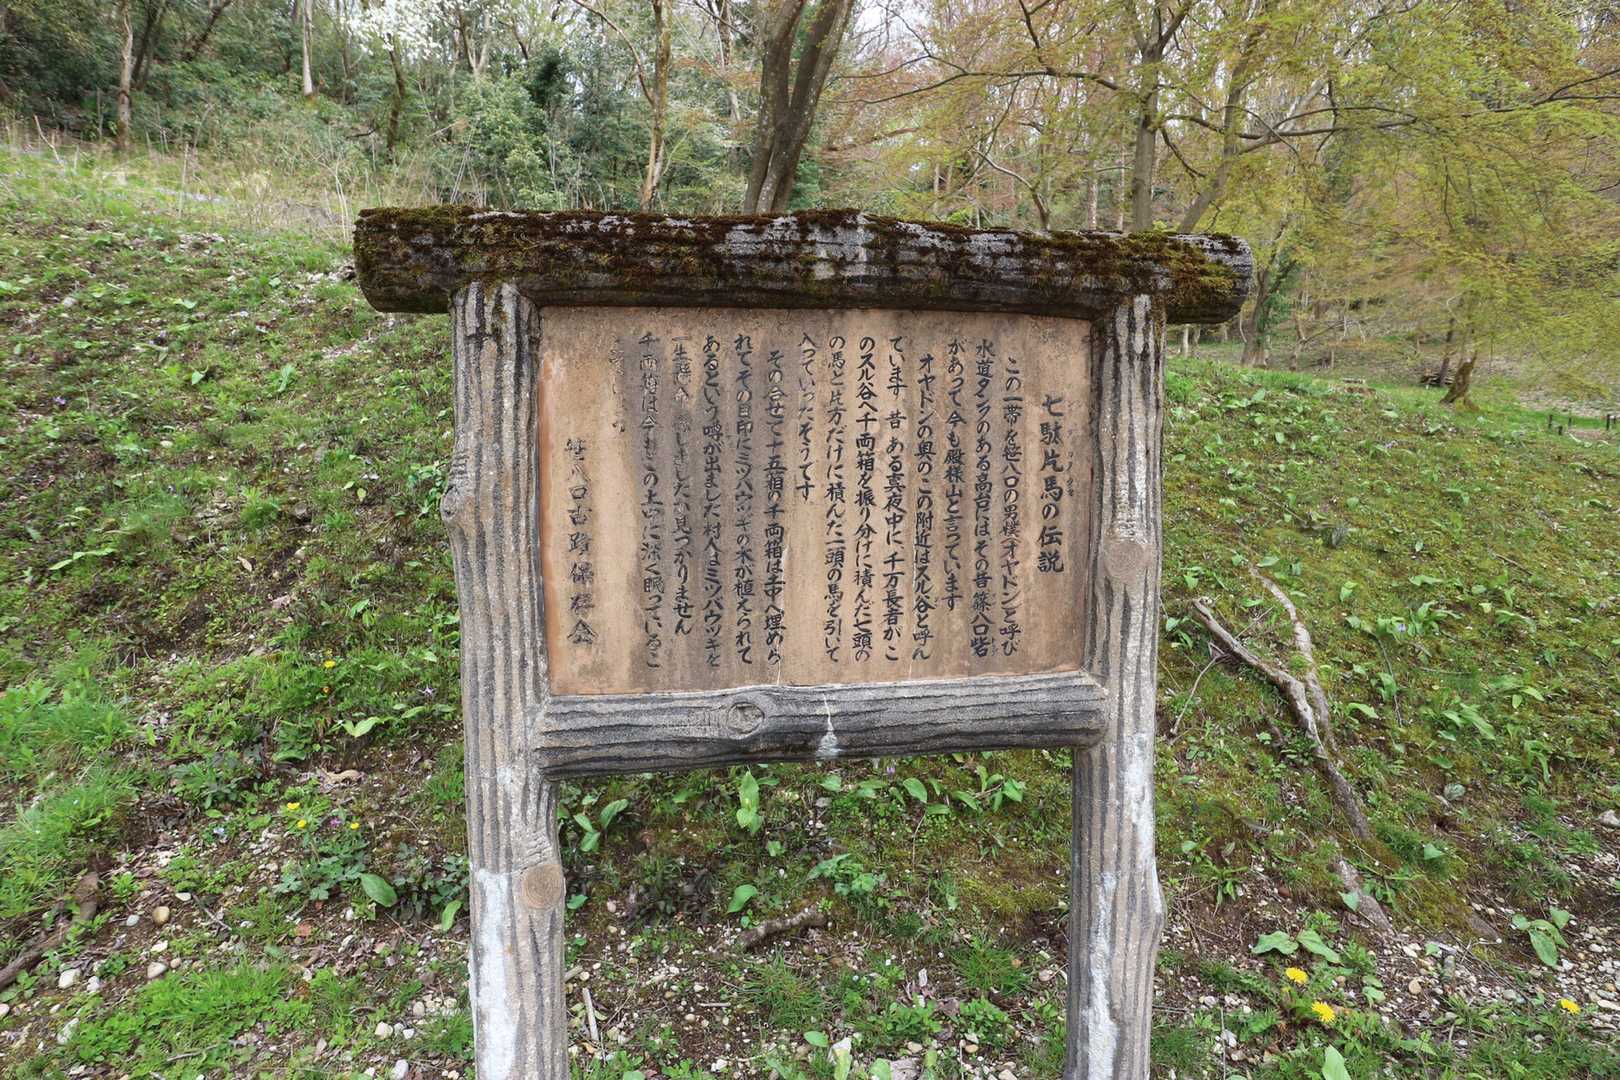 七駄片馬の伝説
この一帯を笹八口の男僕(オヤドン)と呼び
水道タンクのある高台にはその昔 篠八口砦
があって今も殿様山と言っています
オヤドンの奥のこの附近はスル谷と呼ん
でいます 昔 ある真夜中に、千万長者がこ
のスル谷へ千両箱を振り分けに積んだ七頭の
の馬と片方だけに積んだ一頭の馬を引いて
入っていったそうです
その合せて十五箱の千両箱は土中へ埋めら
れてその目印にミツバウツギの木が植えられて
あるという噂が出ました村人はミツバウツギを
一生懸命 しましたが見つかりません
千両箱は今もこの土中に深く眠っているこ
笹八口古蹟保存会